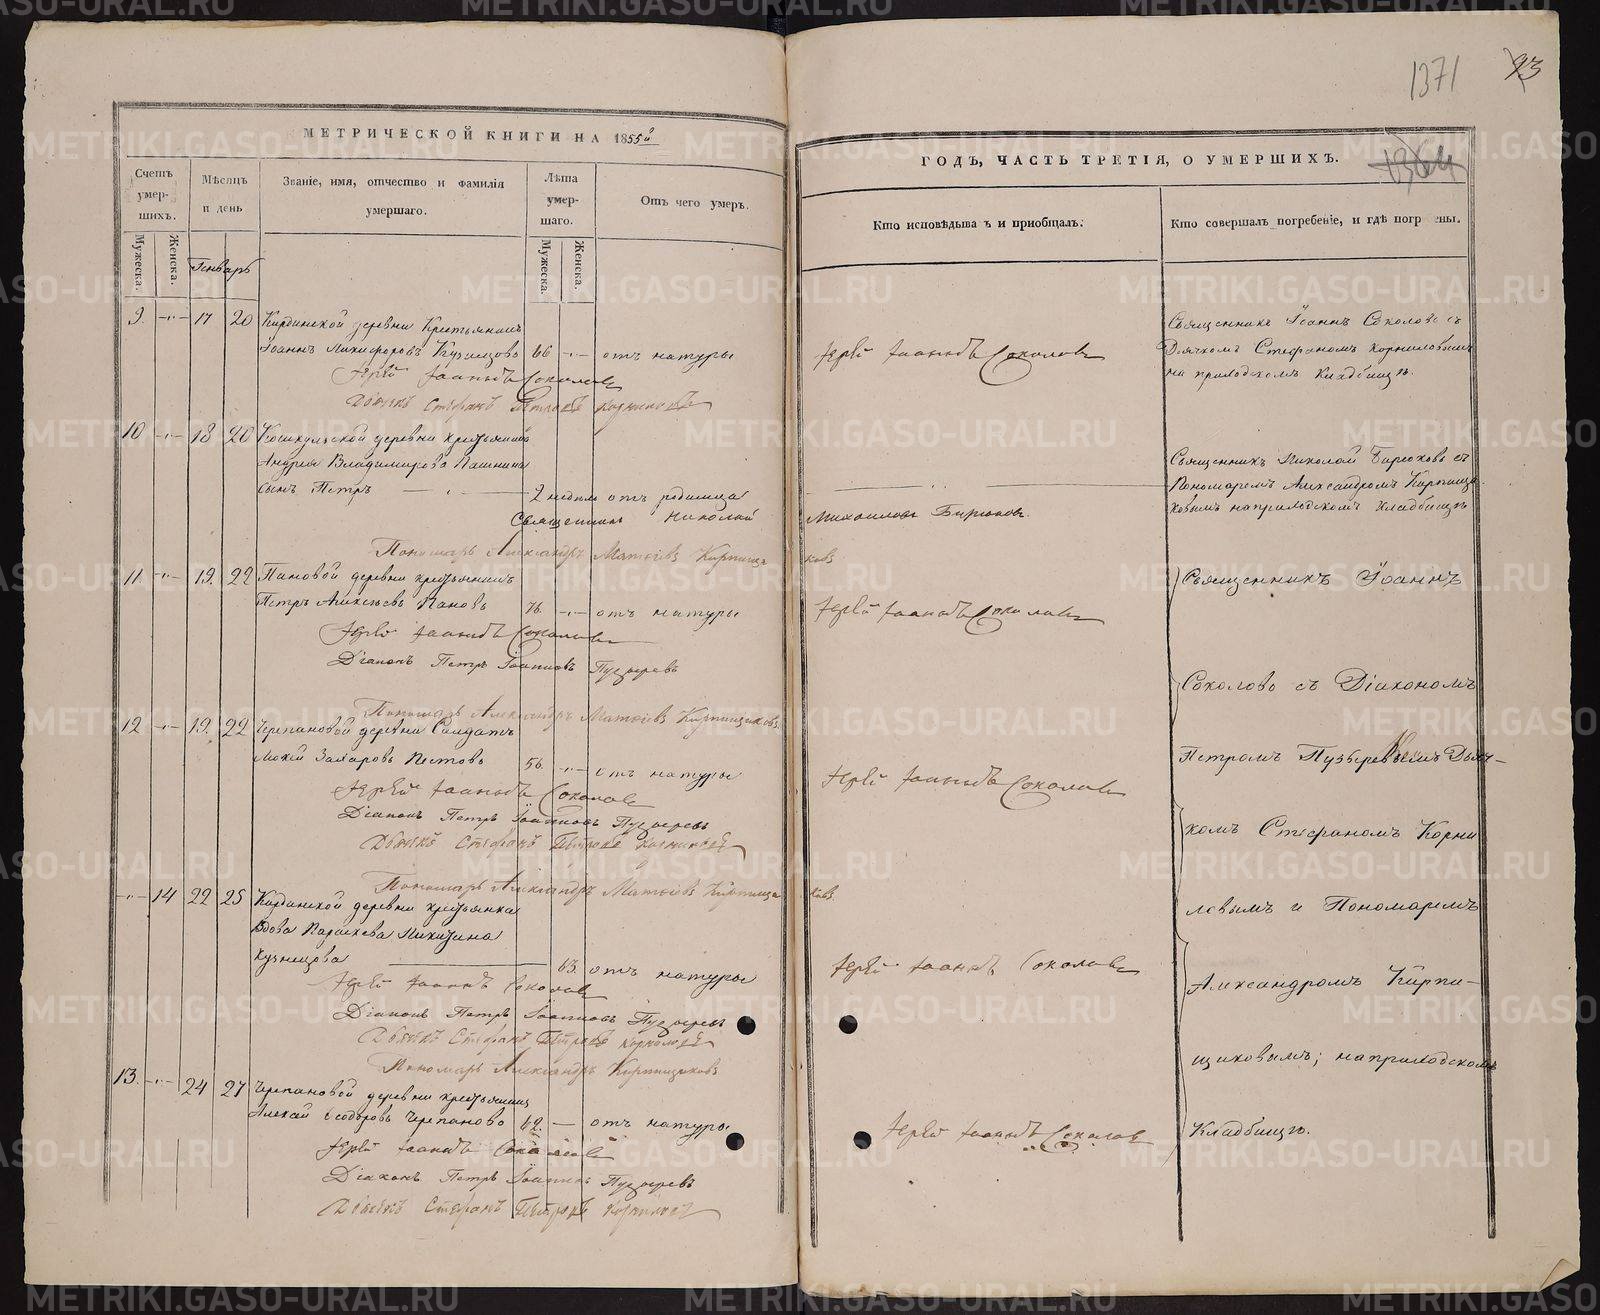 1371 93
МЕТРИЧЕСКОЙ КНИГИ НА 1855й
ГОДЪ, ЧАСТЬ ТРЕТІЯ, О УМЕРШИХЪ.
1364
Счетъ умер-шихъ.
Мужеска.
Женска.
Мѣсяцъ и день
Генварь
Званіе, имя, отчество и фамилія умершаго.
Лѣта умер-шаго.
Мужеска.
Женска.
Отъ чего умеръ.
Кто исповѣдыва ъ и пріобщалъ.
Кто совершалъ погребеніе, и гдѣ погр ены.
9. -"- 17 20 Кирдинской деревни Крестьянинъ
Іоаннъ Никифоровъ Кузнецовъ 66 -"- отъ натуры
Іерей Іоаннъ Соколовъ
Дьячекъ Стефанъ Петровъ Корниловъ
10 -"- 18 20 Кошкульской деревни крестьянина
Андрея Владимирова Пашнина
сынъ Петръ — " — 2 недель отъ родимца
Священникъ Николай
Пономарь Александръ Матвіевъ Кирпищи
11. -"- 19. 22 Пановой деревни крестьянинъ
Петръ Алексѣевъ Пановъ 76. -"- отъ натуры
Іерей Іоаннъ Соколовъ
Діаконъ Петръ Іоанновъ Пузыревъ
Пономарь Александръ Матвіевъ Кирпищиковъ
12 -"- 19. 22 Черпановой деревни Солдатъ
Мокей Захаровъ Пестовъ 56. -"- отъ натуры
Іерей Іоаннъ Соколовъ
Діаконъ Петръ Іоанновъ Пузыревъ
Дьячекъ Стефанъ Петровъ Корниловъ
Пономарь Александръ Матвіевъ Кирпищи
-"- 14 22 25 Кирдинской деревни крестьянка
Вдова Параскева Никитина
Кузнецова — 63. отъ натуры
Іерей Іоаннъ Соколовъ
Діаконъ Петръ Іоанновъ Пузыревъ
Дьячекъ Стефанъ Петровъ Корниловъ
Пономарь Александръ Кирпищиковъ
13. -"- 24 27 Черпановой деревни крестьянинъ
Алексѣй Ѳеодоровъ Черпановъ 62. — отъ натуры
Іерей Іоаннъ Соколовъ
Діаконъ Петръ Іоанновъ Пузыревъ
Дьячекъ Стефанъ Петровъ Корниловъ
Іерей Іоаннъ Соколовъ
Священникъ Іоаннъ Соколовъ съ
Дьячкомъ Стефаномъ Корниловымъ
на приходскомъ Кладбищѣ.
Михаиловъ Бирюковъ.
Священникъ Николай Бирюковъ съ
Пономаремъ Александромъ Кирпищи
ковымъ на приходскомъ кладбищѣ
ковъ
Іерей Іоаннъ Соколовъ
Священникъ Іоаннъ
Соколовъ съ Діакономъ
Іерей Іоаннъ Соколовъ
Петромъ Пузыревымъ Дьяч-
комъ Стефаномъ Корни
ковъ
ловымъ и Пономаремъ
Іерей Іоаннъ Соколовъ
Александромъ Кирпи-
щиковымъ; на приходскомъ
Іерей Іоаннъ Соколовъ
Кладбищѣ.
METRIKI.GASO-URAL.RU